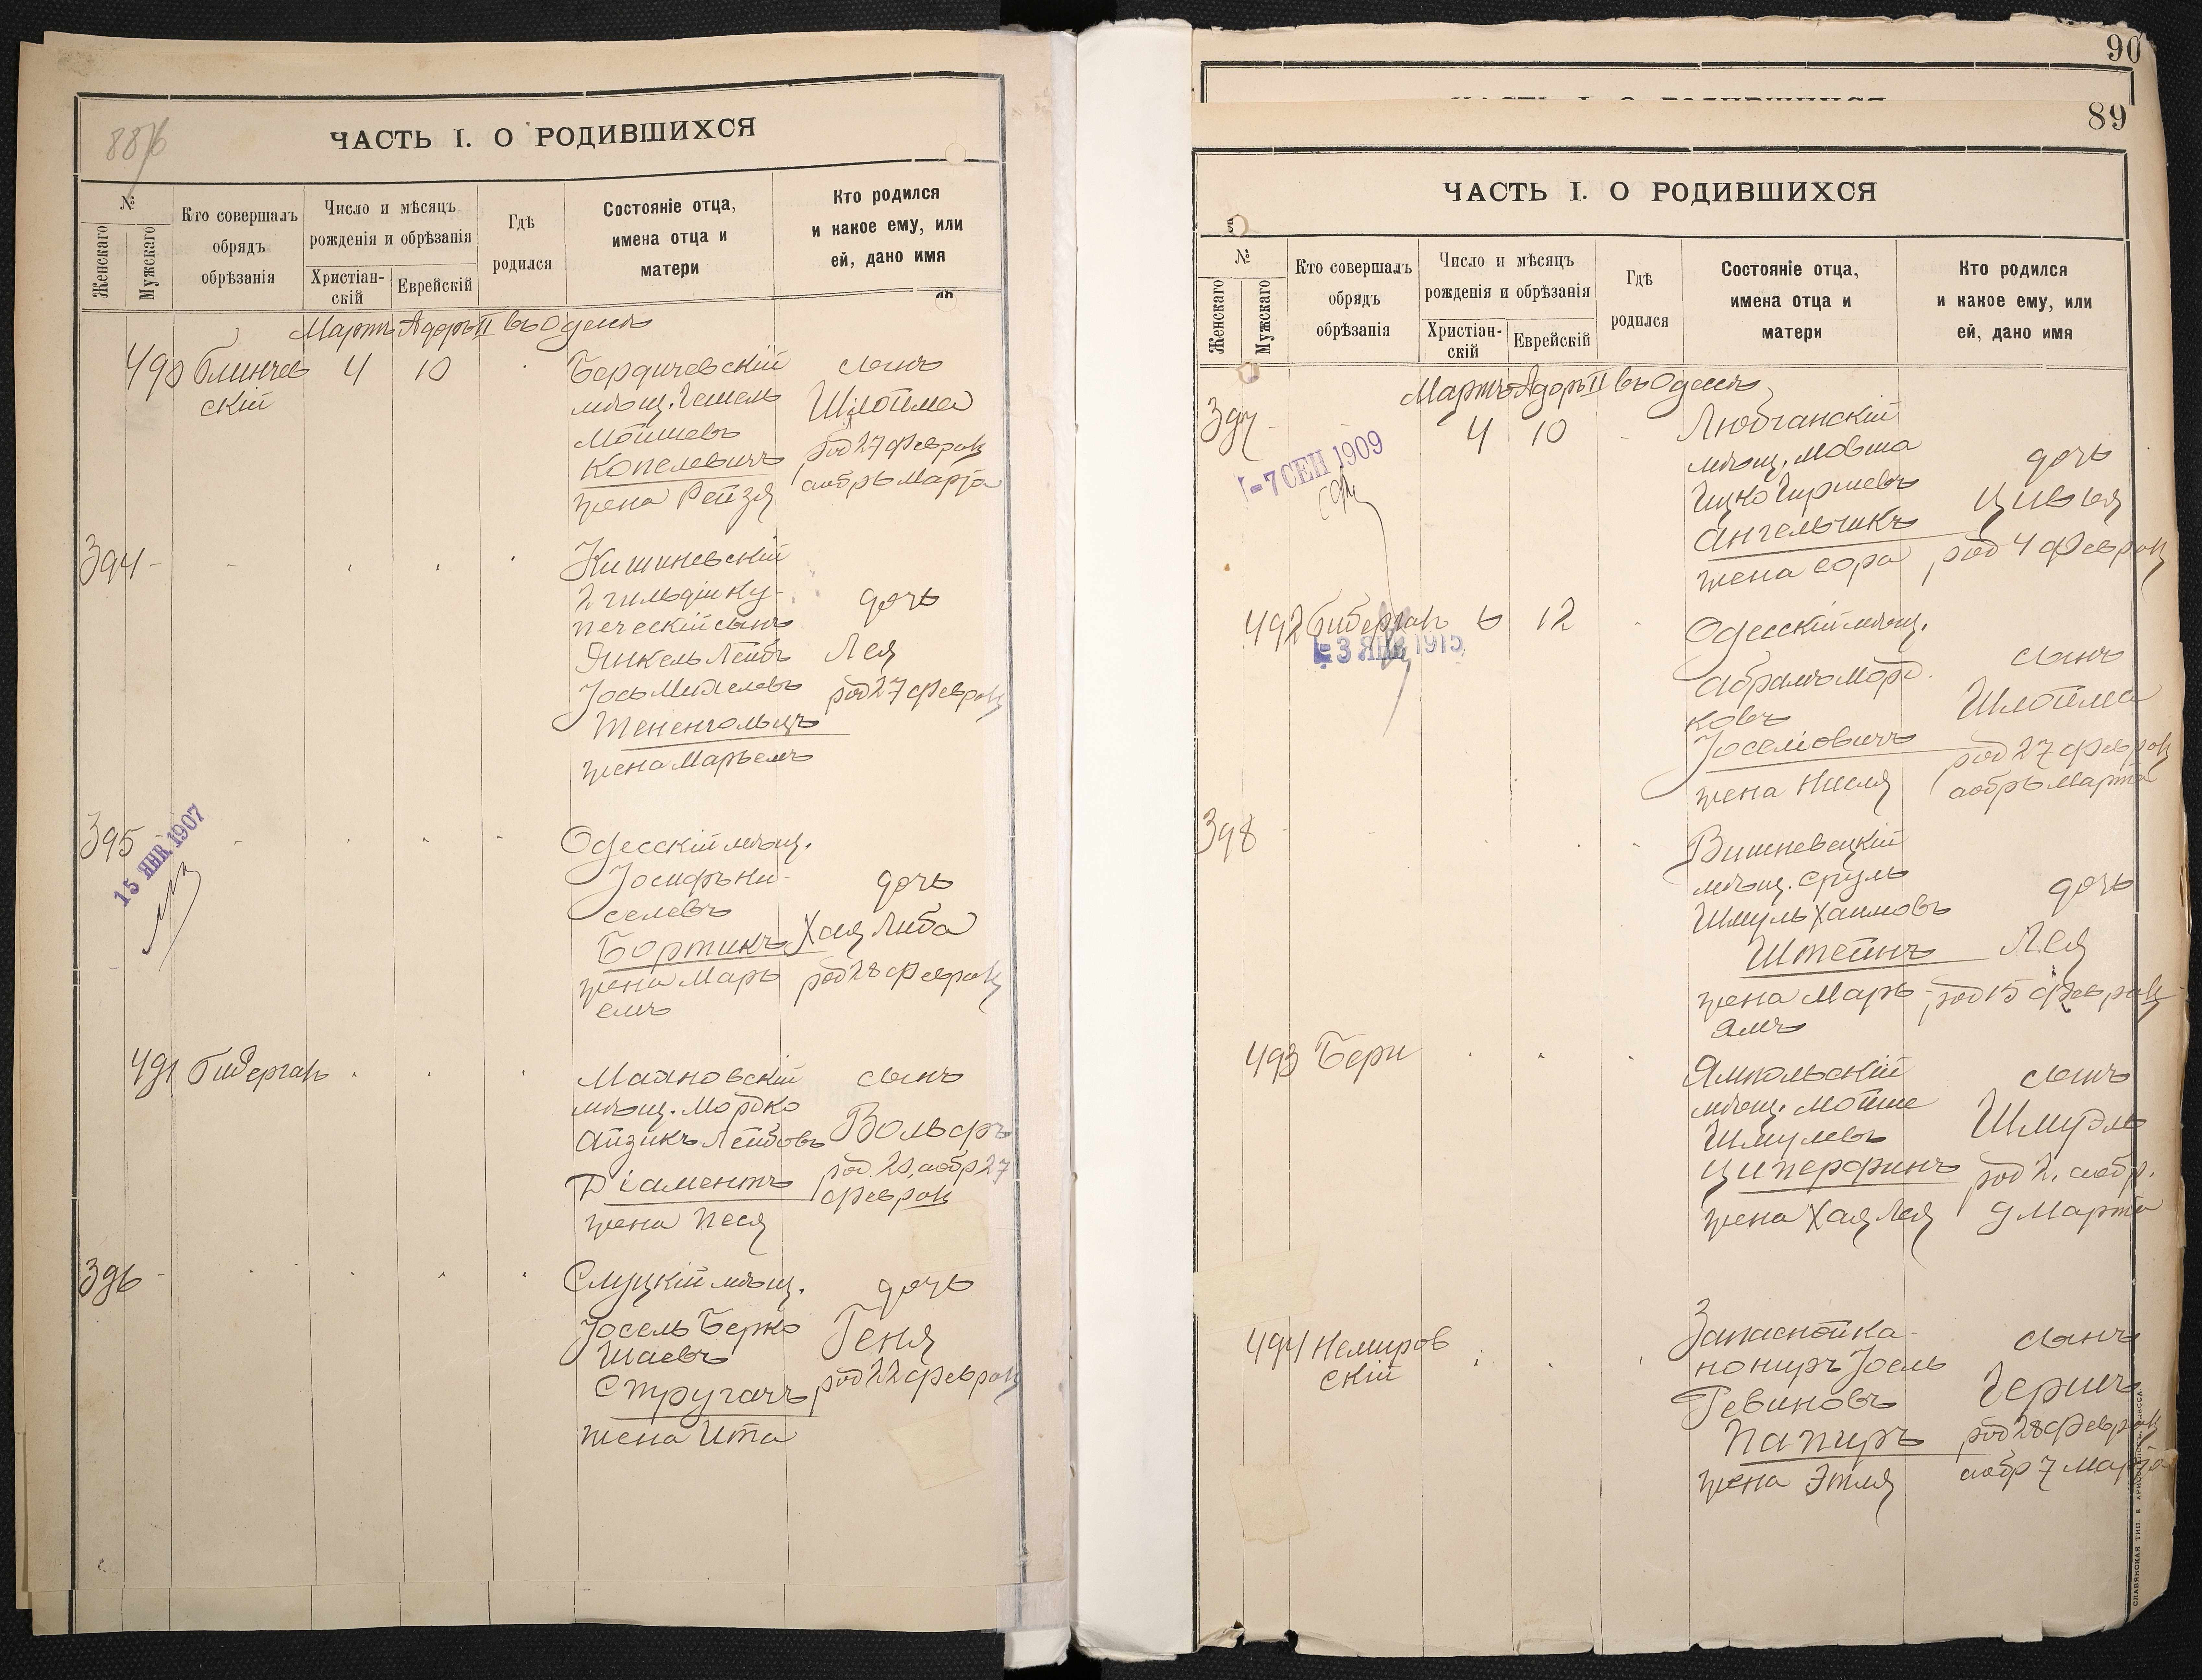 887б
ЧАСТЬ I. О РОДИВШИХСЯ
№
Женскаго
Мужскаго
Кто совершалъ
обрядъ
обрѣзанія
Число и мѣсяцъ
рожденія и обрѣзанія
Христіан-
скій
Еврейскій
Гдѣ
родился
Состояніе отца,
имена отца и
матери
Кто родился
и какое ему, или
ей, дано имя
Мартъ Адаръ II въ Одессѣ
490 Блинчев
скій
4 10
Бердичевскій
мѣщ. Гешель
Мошиевъ
Копелевичъ
жена Рейзя
сынъ
Шлойма
род 27 феврал
а обр 6 марта
394
Кишиневскій
2 гильдіи ку-
печескій сынъ
Янкель Лейбъ
Іось Михелевъ
Тененгольцъ
жена Марьемъ
дочь
Лея
род 27 феврал
395
15 ЯНВ. 1907
Одесскій мѣщ.
Іосифъ Ки-
селевъ
Бортикъ
жена Марь
емъ
дочь
Хая Либа
род 28 феврал
491 Бидерган
Маяновскій
мѣщ. Мордко
Айзикъ Лейбовъ
Діаментъ
жена Песя
сынъ
Вольфъ
род 20, а обр 27
феврал
396
Слуцкій мѣщ.
Іосель Берко
Шаевъ
Стругачъ
жена Ита
дочь
Геня
род 22 феврал
90
89
ЧАСТЬ I. О РОДИВШИХСЯ
№
Женскаго
Мужскаго
Кто совершалъ
обрядъ
обрѣзанія
Число и мѣсяцъ
рожденія и обрѣзанія
Христіан-
скій
Еврейскій
Гдѣ
родился
Состояніе отца,
имена отца и
матери
Кто родился
и какое ему, или
ей, дано имя
Мартъ Адаръ II въ Одессѣ
397
-7 СЕН 1909
4 10
Любчанскій
мѣщ. Мовша
Ицко Гиршевъ
Ангельчикъ
жена Сора
дочь
Цивья
род 4 феврал
492 Бидерган 6 12
3 ЯНВ 1915
Одесскій мѣщ.
Абрамъ Морд
ковъ
Іоселіовичъ
жена Нисля
сынъ
Шлойма
род 27 феврал
а обр 6 марта
398
Вишневецкій
мѣщ. Сруль
Шмуль Хаимовъ
Штейнъ
жена Марь-
ямъ
дочь
Лея
род 15 феврал
493 Бери
Ямпольскій
мѣщ. Мойше
Шмулевъ
Циперфинъ
жена Хая Лея
сынъ
Шмудль
род 2, а обр.
9 марта
494 Немиров
скій
Запасной ка-
нониръ Іоель
Ревиновъ
Папиръ
жена Этля
сынъ
Гершъ
род 28 феврал
а обр 7 марта